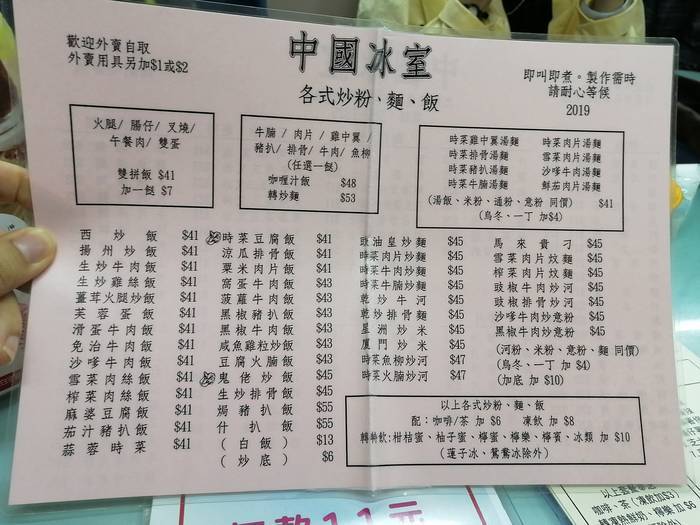 歡迎外賣自取
外賣用具另加$1或$2
中國冰室
各式炒粉、麵、飯
即叫即煮。製作需時
請耐心等候
2019
火腿/ 腸仔/ 叉燒/
午餐肉/ 雙蛋
雙拼飯 $41
加一餸 $7
牛腩/ 肉片/ 雞中翼/
豬扒/ 排骨/ 牛肉/ 魚柳
(任選一餸)
咖喱汁飯 $48
轉炒麵 $53
時菜雞中翼湯麵 時菜肉片湯麵
時菜排骨湯麵 雪菜肉片湯麵
時菜豬扒湯麵 沙爹牛肉湯麵
時菜牛腩湯麵 鮮茄肉片湯麵
(湯飯、米粉、通粉、意粉 同價) $41
(烏冬、一丁 加$4)
西炒飯 $41
揚州炒飯 $41
生炒牛肉飯 $41
生炒雞絲飯 $41
薑茸火腿炒飯 $41
芙蓉蛋飯 $41
滑蛋牛肉飯 $41
免治牛肉飯 $41
沙爹牛肉飯 $41
雪菜肉絲飯 $41
榨菜肉絲飯 $41
麻婆豆腐飯 $41
茄汁豬扒飯 $41
蒜蓉時菜 $41
時菜豆腐飯 $41
涼瓜排骨飯 $41
粟米肉片飯 $41
窩蛋牛肉飯 $43
菠蘿牛肉飯 $43
黑椒豬扒飯 $43
黑椒牛肉飯 $43
咸魚雞粒炒飯 $43
豆腐火腩飯 $43
鬼佬炒飯 $45
生炒排骨飯 $45
焗豬扒飯 $55
什扒飯 $55
(白飯) $13
(炒底) $6
豉油皇炒麵 $45
時菜肉片炒麵 $45
時菜牛肉炒麵 $45
時菜牛腩炒麵 $45
乾炒牛河 $45
乾炒排骨麵 $45
星洲炒米 $45
廈門炒米 $45
時菜魚柳炒河 $47
時菜火腩炒河 $47
馬來貴刁 $45
雪菜肉片炆麵 $45
榨菜肉片炆麵 $45
豉椒牛肉炒河 $45
豉椒排骨炒河 $45
沙爹牛肉炒意粉 $45
黑椒牛肉炒意粉 $45
(河粉、米粉、意粉、麵 同價)
(烏冬、一丁 加$4)
(加底 加$10)
以上各式炒粉、麵、飯
配：咖啡/茶 加$6 凍飲 加$8
轉特飲:柑桔蜜、柚子蜜、檸蜜、檸樂、檸賓、冰類 加$10
(蓮子冰、鴛鴦冰除外)
咖啡、茶(凍飲加$3)